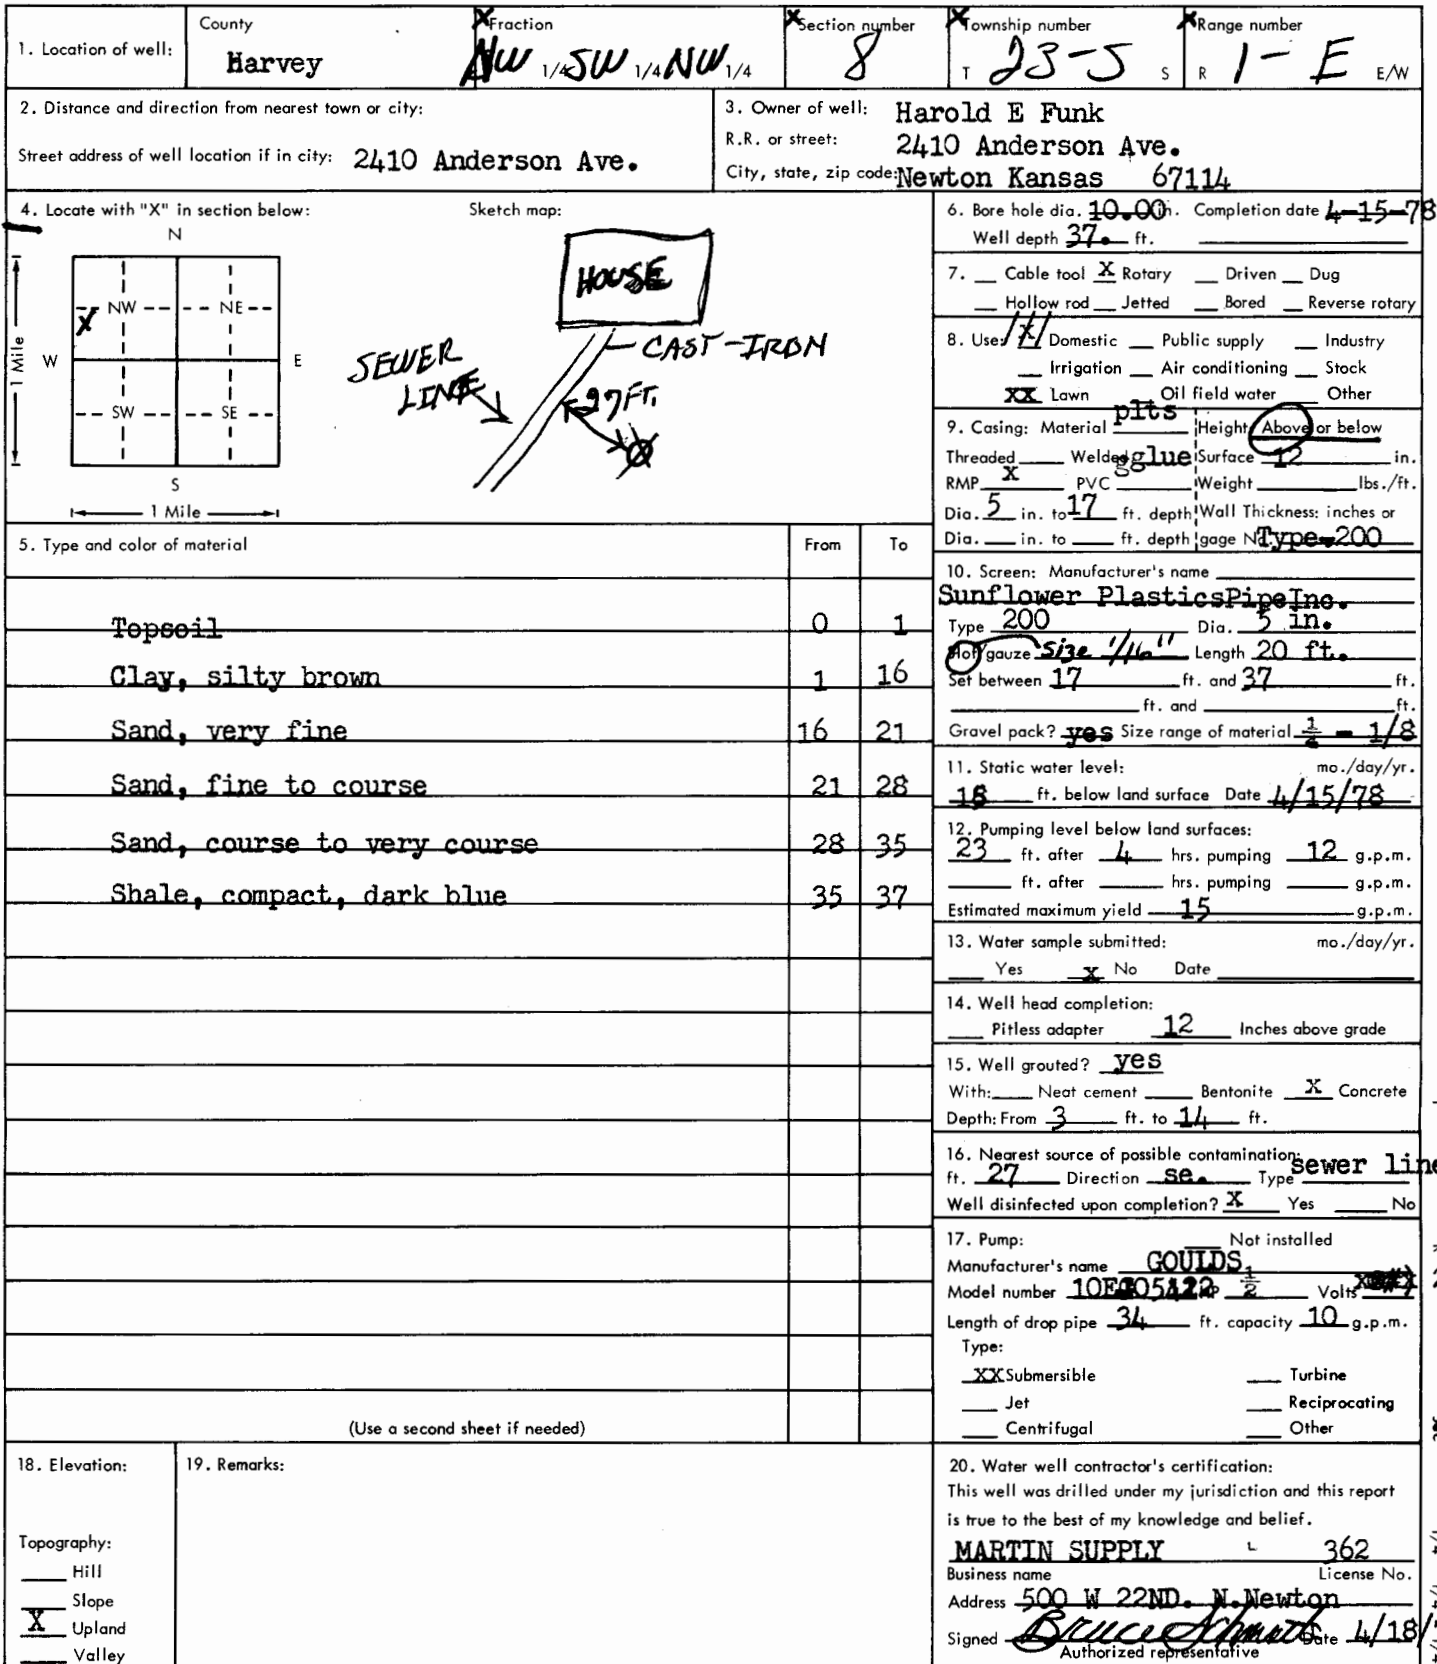 1. Location of well: County Harvey Fraction NW 1/4 SW 1/4 NW 1/4 Section number 8 Township number T 23-S S Range number R 1-E E/W
2. Distance and direction from nearest town or city:
Street address of well location if in city: 2410 Anderson Ave.
3. Owner of well: Harold E Funk
R.R. or street: 2410 Anderson Ave.
City, state, zip code: Newton Kansas 67114
4. Locate with "X" in section below: Sketch map:
N
NW NE
X
W E
SW SE
S
1 Mile
1 Mile
HOUSE
CAST-IRON
SEWER
LINE
27 FT.
5. Type and color of material From To
Topsoil 0 1
Clay, silty brown 1 16
Sand, very fine 16 21
Sand, fine to course 21 28
Sand, course to very course 28 35
Shale, compact, dark blue 35 37
(Use a second sheet if needed)
6. Bore hole dia. 10.00 in. Completion date 4-15-78
Well depth 37. ft.
7. Cable tool X Rotary Driven Dug
Hollow rod Jetted Bored Reverse rotary
8. Use: X Domestic Public supply Industry
Irrigation Air conditioning Stock
XX Lawn Oil field water Other
9. Casing: Material plts Height: Above or below
Threaded Welded glue Surface 12 in.
RMP X PVC Weight lbs./ft.
Dia. 5 in. to 17 ft. depth Wall Thickness: inches or
Dia. in. to ft. depth gage No. Type-200
10. Screen: Manufacturer's name
Sunflower PlasticsPipeInc.
Type 200 Dia. 5 in.
Slot/gauze Size 1/16" Length 20 ft.
Set between 17 ft. and 37 ft.
ft. and ft.
Gravel pack? yes Size range of material - 1/8
11. Static water level: mo./day/yr.
ft. below land surface Date 4/15/78
12. Pumping level below land surfaces:
23 ft. after 4 hrs. pumping 12 g.p.m.
ft. after hrs. pumping g.p.m.
Estimated maximum yield 15 g.p.m.
13. Water sample submitted: mo./day/yr.
Yes X No Date
14. Well head completion:
Pitless adapter 12 Inches above grade
15. Well grouted? yes
With: Neat cement Bentonite X Concrete
Depth: From 3 ft. to 14 ft.
16. Nearest source of possible contamination:
ft. 27 Direction se. Type sewer line
Well disinfected upon completion? X Yes No
17. Pump: Not installed
Manufacturer's name GOULDS
Model number HP 1/2 Volts
Length of drop pipe 34 ft. capacity 10 g.p.m.
Type:
XX Submersible Turbine
Jet Reciprocating
Centrifugal Other
18. Elevation:
Topography:
Hill
Slope
X Upland
Valley
19. Remarks:
20. Water well contractor's certification:
This well was drilled under my jurisdiction and this report
is true to the best of my knowledge and belief.
MARTIN SUPPLY 362
Business name License No.
Address 500 W 22ND. N.Newton
Signed Bruce Date 4/18/
Authorized representative